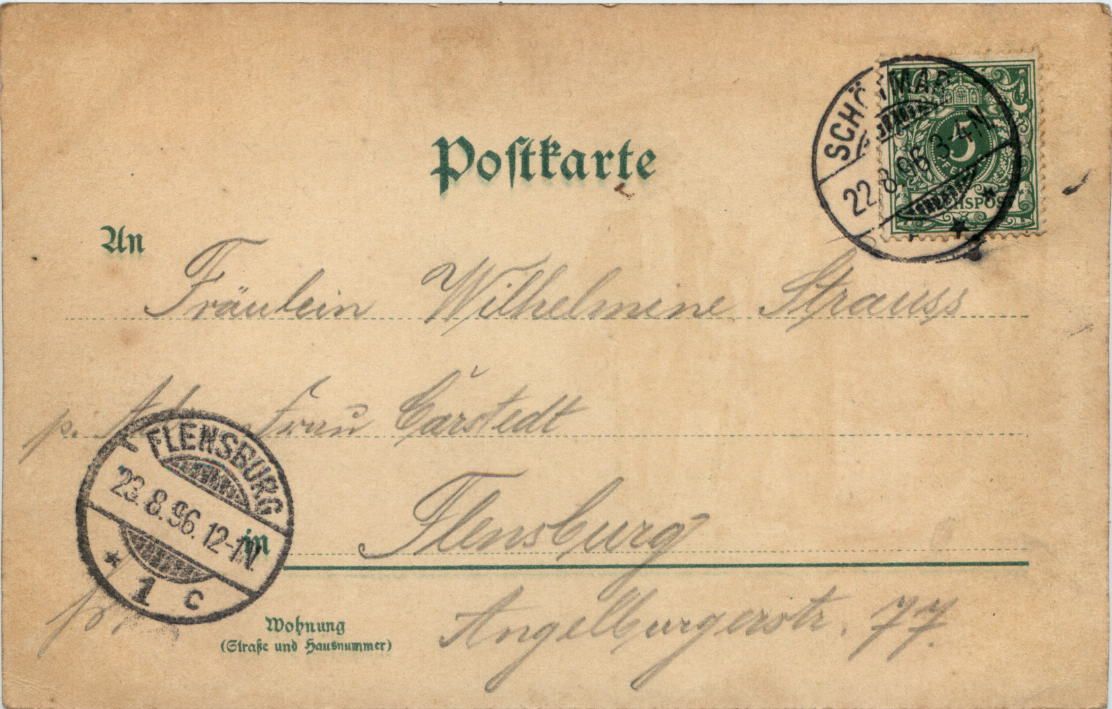 Postkarte
SCHÖTMAR
22.8.96.3-4N.
5
REICHSPOST
An
Fräulein Wilhelmine Strauss
p. Adr. Frau Carstedt
FLENSBURG
23.8.96.12-1N.
1 c
in Flensburg
Wohnung
(Straße und Hausnummer)
Angelburgerstr. 77.